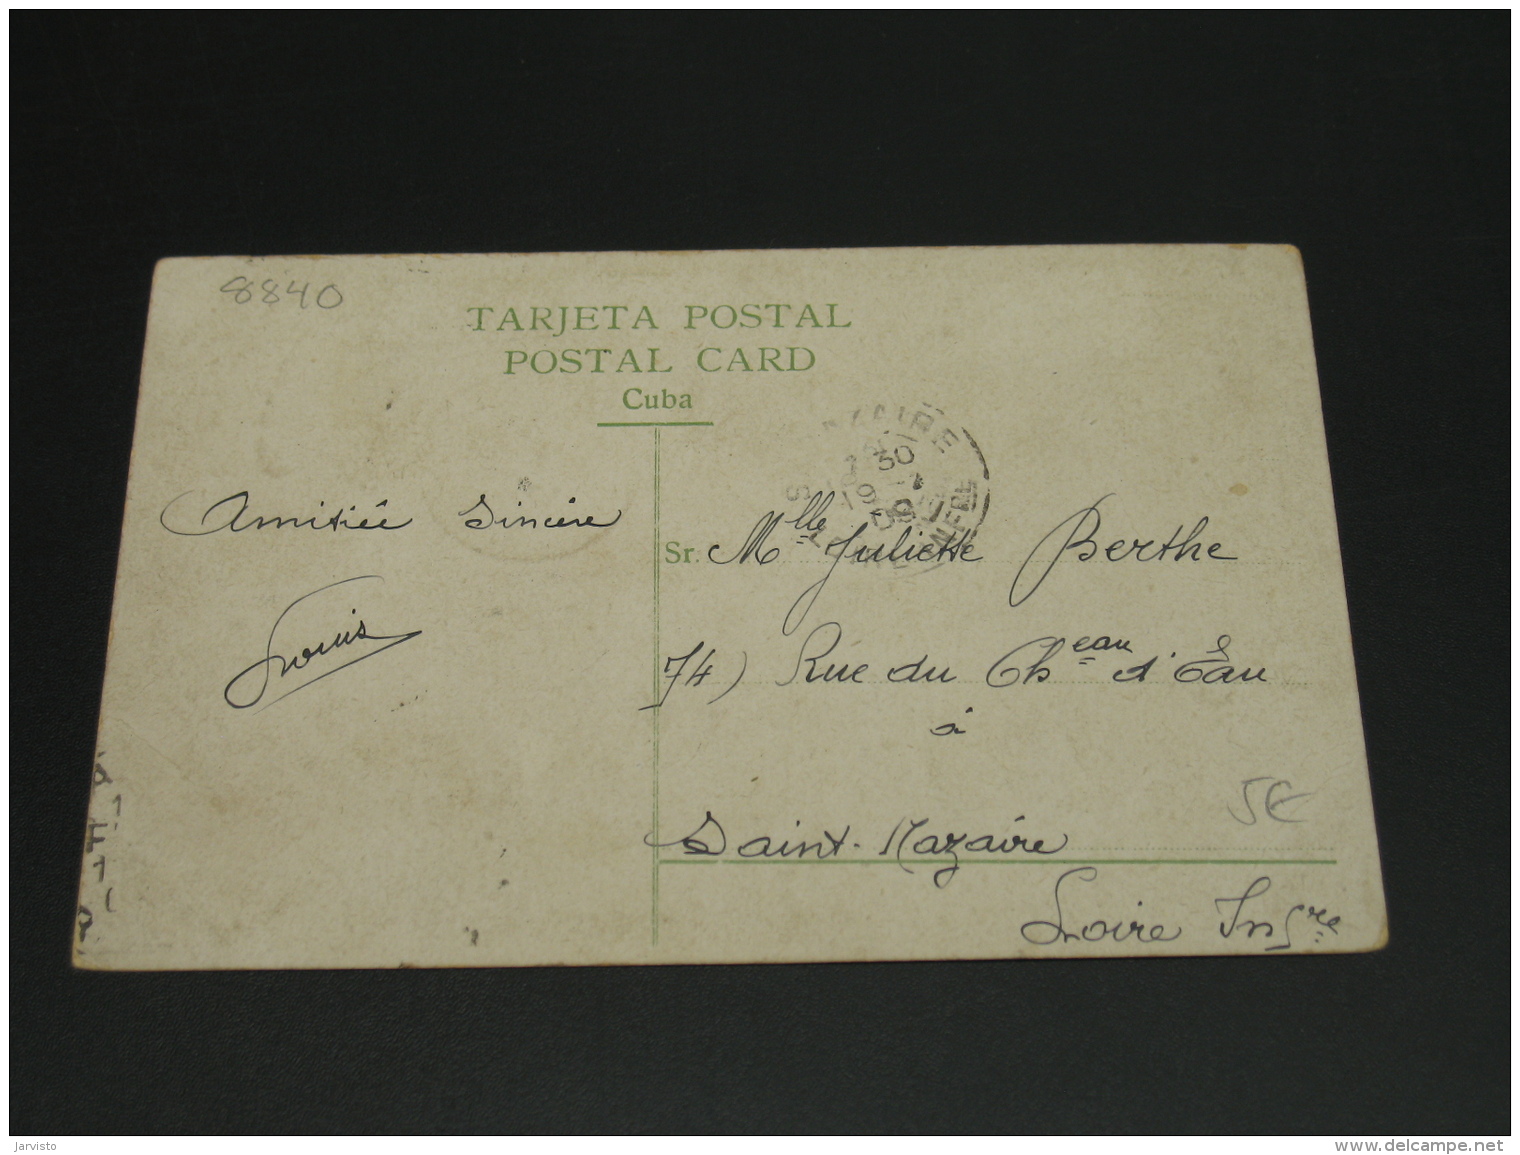 8840
TARJETA POSTAL
POSTAL CARD
Cuba
Amitiée Sincère
Louis
Sr. Mlle Juliette Berthe
74) Rue du Cheau d'Eau
à
Saint-Nazaire
Loire Infre
5€
30
jarvisto
www.delcampe.net